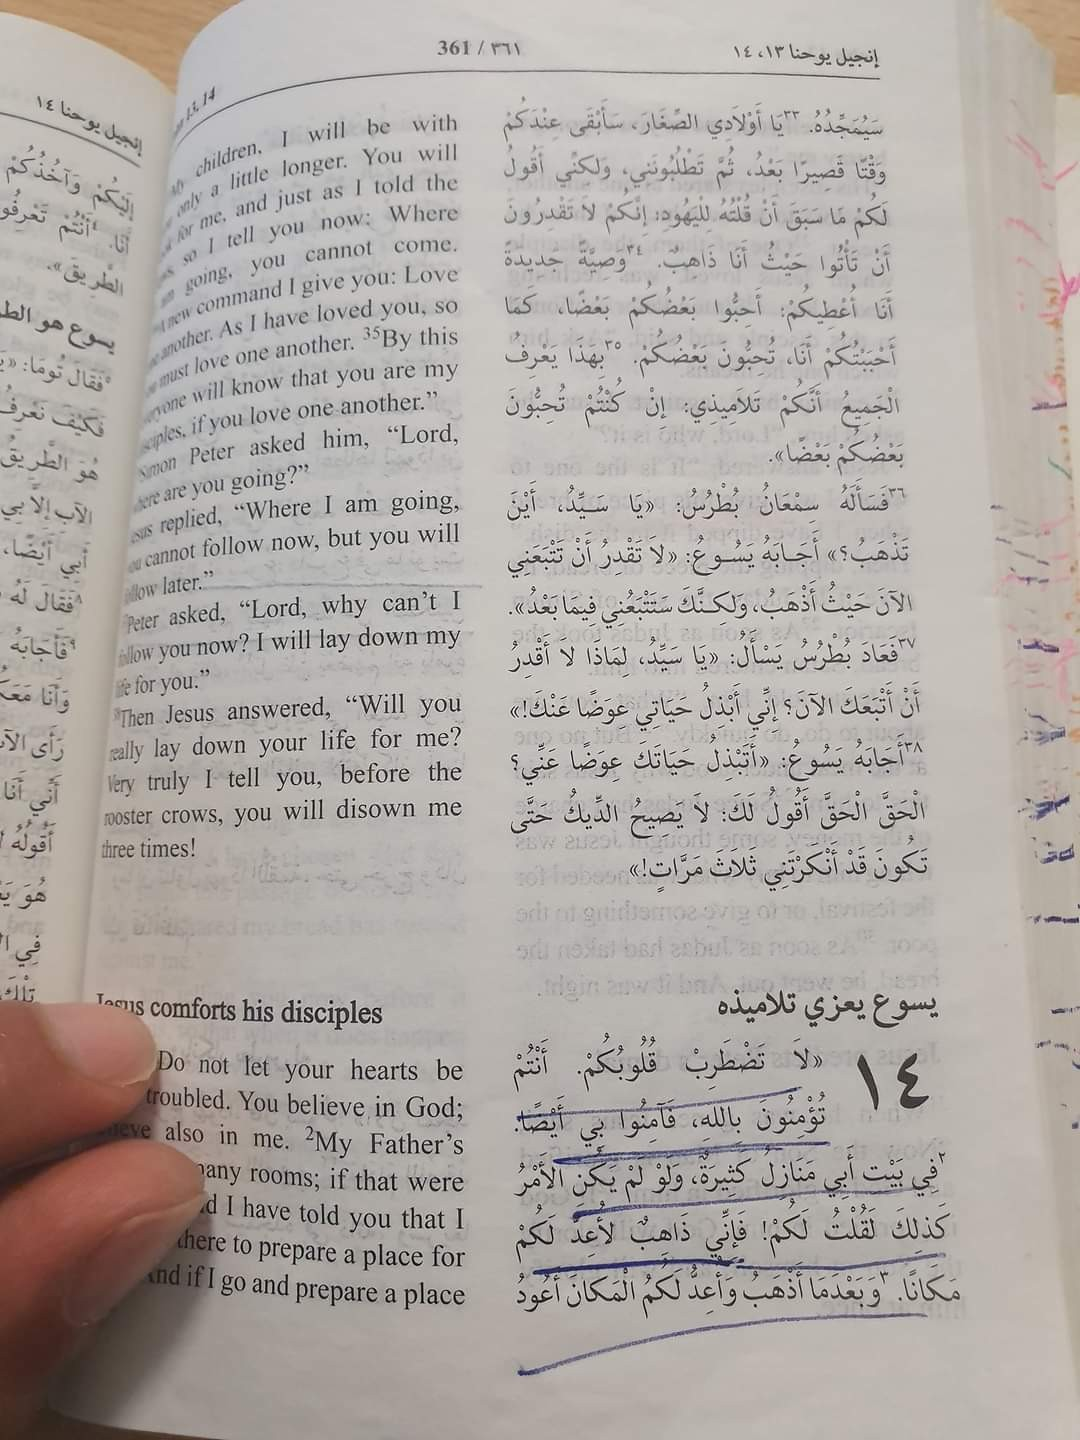 إنجيل يوحنا ١٣، ١٤
361 / ٣٦١
13, 14
سَيُمَجِّدُهُ. ٣٣يَا أَوْلَادِي الصِّغَارَ، سَأَبْقَى عِنْدَكُمْ
وَقْتًا قَصِيرًا بَعْدُ، ثُمَّ تَطْلُبُونَنِي، وَلكِنِّي أَقُولُ
لَكُمْ مَا سَبَقَ أَنْ قُلْتُهُ لِلْيَهُودِ: إِنَّكُمْ لاَ تَقْدِرُونَ
أَنْ تَأْتُوا حَيْثُ أَنَا ذَاهِبٌ. ٣٤وَصِيَّةً جَدِيدَةً
أَنَا أُعْطِيكُمْ: أَحِبُّوا بَعْضُكُمْ بَعْضًا، كَمَا
أَحْبَبْتُكُمْ أَنَا، تُحِبُّونَ بَعْضُكُمْ. ٣٥بِهَذَا يَعْرِفُ
الْجَمِيعُ أَنَّكُمْ تَلاَمِيذِي: إِنْ كُنْتُمْ تُحِبُّونَ
بَعْضُكُمْ بَعْضًا».
٣٦فَسَأَلَهُ سِمْعَانُ بُطْرُسُ: «يَا سَيِّدُ، أَيْنَ
تَذْهَبُ؟» أَجَابَهُ يَسُوعُ: «لاَ تَقْدِرُ أَنْ تَتْبَعَنِي
الآنَ حَيْثُ أَذْهَبُ، وَلكِنَّكَ سَتَتْبَعُنِي فِيمَا بَعْدُ».
٣٧فَعَادَ بُطْرُسُ يَسْأَلُ: «يَا سَيِّدُ، لِمَاذَا لاَ أَقْدِرُ
أَنْ أَتْبَعَكَ الآنَ؟ إِنِّي أَبْذِلُ حَيَاتِي عِوَضًا عَنْكَ!»
٣٨أَجَابَهُ يَسُوعُ: «أَتَبْذِلُ حَيَاتَكَ عِوَضًا عَنِّي؟
الْحَقَّ الْحَقَّ أَقُولُ لَكَ: لاَ يَصِيحُ الدِّيكُ حَتَّى
تَكُونَ قَدْ أَنْكَرْتَنِي ثَلاَثَ مَرَّاتٍ!»
يسوع يعزي تلاميذه
١٤ «لاَ تَضْطَرِبْ قُلُوبُكُمْ. أَنْتُمْ
تُؤْمِنُونَ بِاللهِ، فَآمِنُوا بِي أَيْضًا.
٢فِي بَيْتِ أَبِي مَنَازِلُ كَثِيرَةٌ، وَلَوْ لَمْ يَكُنِ الأَمْرُ
كَذلِكَ لَقُلْتُ لَكُمْ! فَإِنِّي ذَاهِبٌ لأُعِدَّ لَكُمْ
مَكَانًا. ٣وَبَعْدَمَا أَذْهَبُ وَأُعِدُّ لَكُمُ الْمَكَانَ أَعُودُ
My children, I will be with
only a little longer. You will
for me, and just as I told the
so I tell you now: Where
going, you cannot come.
new command I give you: Love
another. As I have loved you, so
must love one another. 35By this
everyone will know that you are my
disciples, if you love one another.”
Simon Peter asked him, “Lord,
where are you going?”
Jesus replied, “Where I am going,
you cannot follow now, but you will
follow later.”
Peter asked, “Lord, why can’t I
follow you now? I will lay down my
life for you.”
Then Jesus answered, “Will you
really lay down your life for me?
Very truly I tell you, before the
rooster crows, you will disown me
three times!
Jesus comforts his disciples
Do not let your hearts be
troubled. You believe in God;
also in me. 2My Father’s
many rooms; if that were
I have told you that I
there to prepare a place for
And if I go and prepare a place
إنجيل يوحنا ١٤
إِلَيْكُمْ وَآخُذُكُمْ
أَنَا. ٤أَنْتُمْ
الطَّرِيقَ».
يسوع هو
٥فَقَالَ تُومَا:
فَكَيْفَ نَعْرِفُ
هُوَ الطَّرِيقُ
الآبِ إِلاَّ بِي
أَبِي أَيْضًا،
٨فَقَالَ لَهُ
٩فَأَجَابَهُ
وَأَنَا
رَأَى
أَنِّي أَنَا
أَقُولُهُ
هُوَ
فِي
تِلْكَ